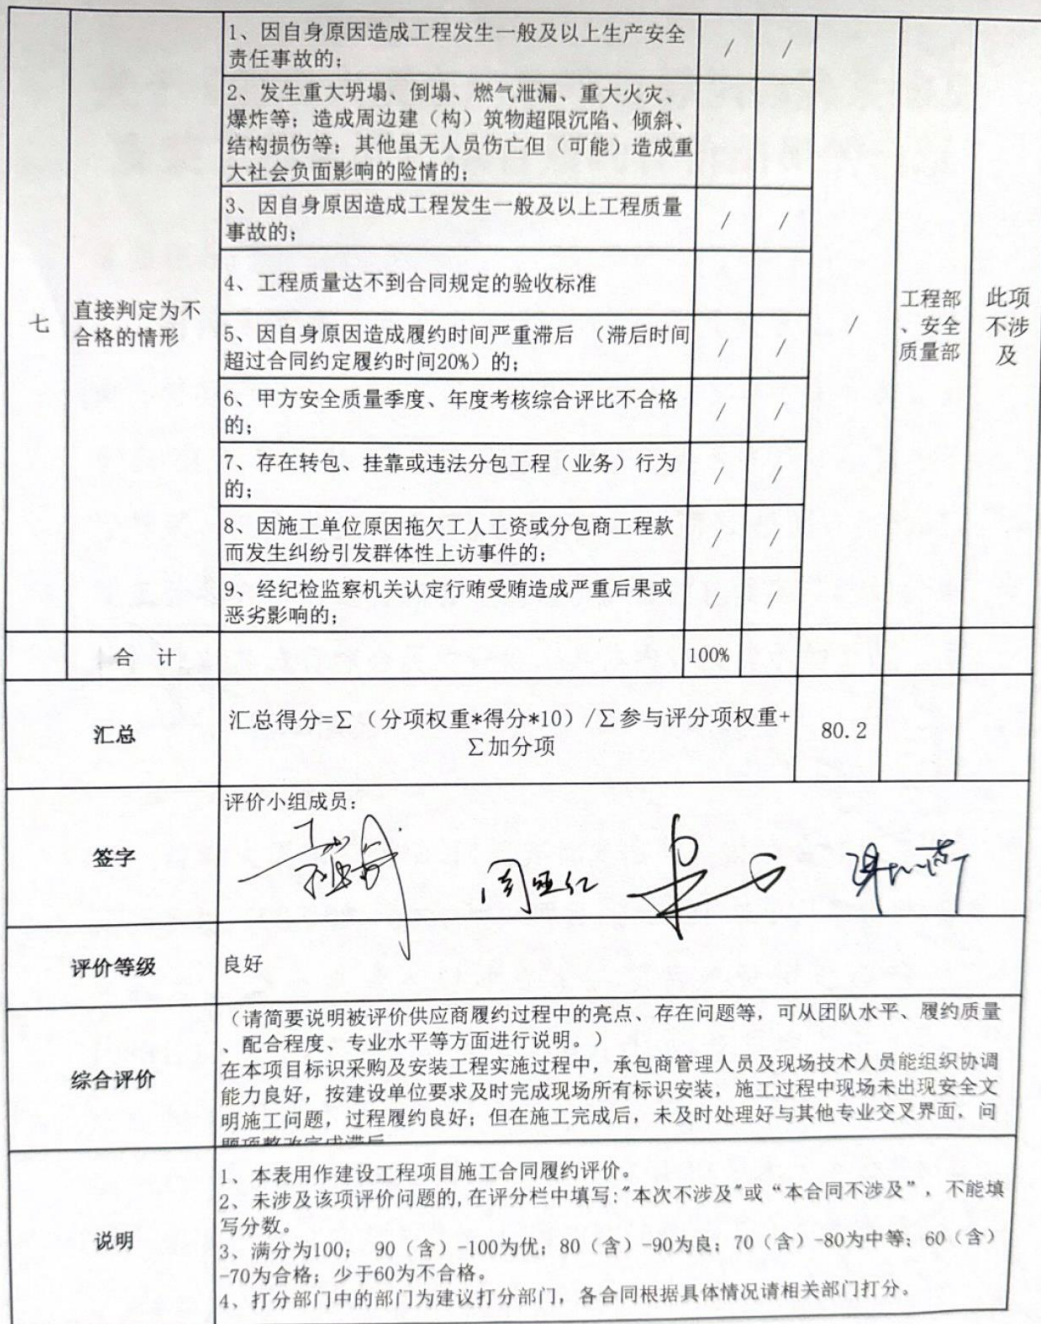 1、因自身原因造成工程发生一般及以上生产安全
责任事故的；
/ /
2、发生重大坍塌、倒塌、燃气泄漏、重大火灾、
爆炸等；造成周边建（构）筑物超限沉陷、倾斜、
结构损伤等；其他虽无人员伤亡但（可能）造成重
大社会负面影响的险情的；
3、因自身原因造成工程发生一般及以上工程质量
事故的；
/ /
4、工程质量达不到合同规定的验收标准
七
直接判定为不
合格的情形
/
工程部
、安全
质量部
此项
不涉
及
5、因自身原因造成履约时间严重滞后 （滞后时间
超过合同约定履约时间20%）的；
/ /
6、甲方安全质量季度、年度考核综合评比不合格
的；
/ /
7、存在转包、挂靠或违法分包工程（业务）行为
的；
/ /
8、因施工单位原因拖欠工人工资或分包商工程款
而发生纠纷引发群体性上访事件的；
/ /
9、经纪检监察机关认定行贿受贿造成严重后果或
恶劣影响的；
/ /
合 计 100%
汇总
汇总得分=∑（分项权重*得分*10）/∑参与评分项权重+
∑加分项
80.2
签字
评价小组成员：
评价等级
良好
综合评价
（请简要说明被评价供应商履约过程中的亮点、存在问题等，可从团队水平、履约质量
、配合程度、专业水平等方面进行说明。）
在本项目标识采购及安装工程实施过程中，承包商管理人员及现场技术人员能组织协调
能力良好，按建设单位要求及时完成现场所有标识安装，施工过程中现场未出现安全文
明施工问题，过程履约良好；但在施工完成后，未及时处理好与其他专业交叉界面，问
题项整改完成滞后
说明
1、本表用作建设工程项目施工合同履约评价。
2、未涉及该项评价问题的,在评分栏中填写:"本次不涉及"或“本合同不涉及”，不能填
写分数。
3、满分为100； 90（含）-100为优；80（含）-90为良；70（含）-80为中等；60（含）
-70为合格；少于60为不合格。
4、打分部门中的部门为建议打分部门，各合同根据具体情况请相关部门打分。